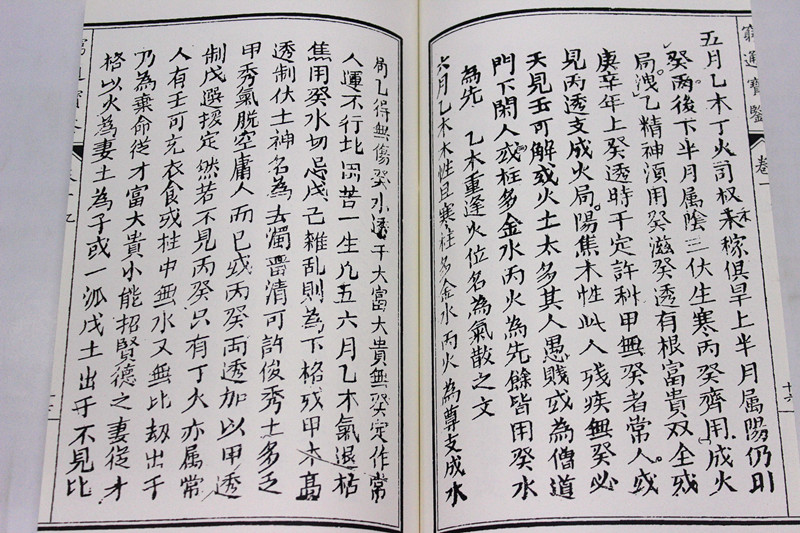 窮通寶鑒
卷一
五月乙木丁火司权禾稼俱旱上半月属陽仍用
癸水下半月属陰三伏生寒丙癸齊用成火
局洩乙精神須用癸滋癸透有根富貴双全或
庚辛年上癸透時干定許科甲無癸者常人或
見丙透支成火局陽焦木性此人残疾無癸必
夭見壬可解或火土太多其人愚賤或為僧道
門下閑人或柱多金水丙火為先餘皆用癸水
為先　乙木重逢火位名為氣散之文
六月乙木木性且寒柱多金水丙火為尊支成水
局乙得無傷癸水透干大富大貴無癸定作常
人運不行北困苦一生凡五六月乙木氣退枯
焦用癸水切忌戊己雜乱則為下格或甲木高
透制伏土神名為去濁留清可許俊秀土多乏
甲秀氣脱空庸人而已或丙癸両透加以甲透
制戊選援定然若不見丙癸只有丁火亦属常
人有壬可充衣食或柱中無水又無比刼出干
乃為棄命從才富大貴小能招賢德之妻從才
格以火為妻土為子或一派戊土出干不見比